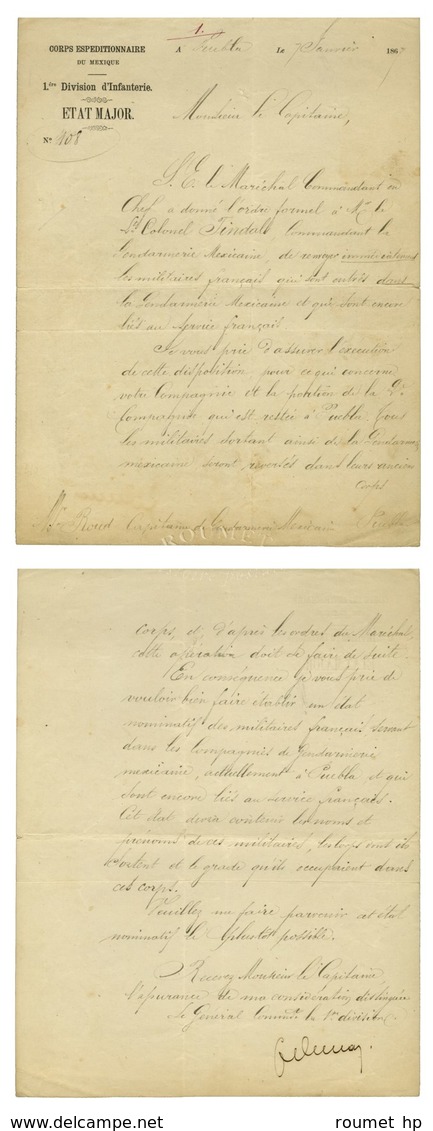 1.
CORPS ESPEDITIONNAIRE
DU MEXIQUE
A Puebla Le 7 Janvier 1867
1.ère Division d'Infanterie.
ETAT MAJOR.
N° 108
Monsieur le Capitaine,
S. E. le Maréchal Commandant en
Chef a donné l'ordre formel à Mr. le
Lt Colonel Tindal Commandant la
Gendarmerie Mexicaine, de renvoyer immédiatement
les militaires français qui sont entrés dans
la Gendarmerie Mexicaine et qui sont encore
liés au service français.
Je vous prie d'assurer l'exécution
de cette disposition pour ce qui concerne
votre Compagnie et la portion de la
Compagnie qui est restée à Puebla. Tous
les militaires sortant ainsi de la Gendarmie
mexicaine seront reversés dans leurs anciens
Corps
Mr Roud Capitaine de Gendarmerie Mexicaine Puebla
ROUMET
corps, et d'après les ordres du Maréchal,
cette opération doit se faire de suite.
En conséquence je vous prie de
vouloir bien faire établir un état
nominatif des militaires français servant
dans les Compagnies de Gendarmerie
mexicaine, actuellement à Puebla et qui
sont encore liés au service français.
Cet état devra contenir les noms et
prénoms de ces militaires, les corps d'où ils
sortent et le grade qu'ils occupaient dans
ces corps.
Veuillez me faire parvenir cet état
nominatif le plutôt possible.
Recevez Monsieur le Capitaine
l'assurance de ma considération distinguée
Le Général Command.t la 1re division.
www.delcampe.net
roumet hp